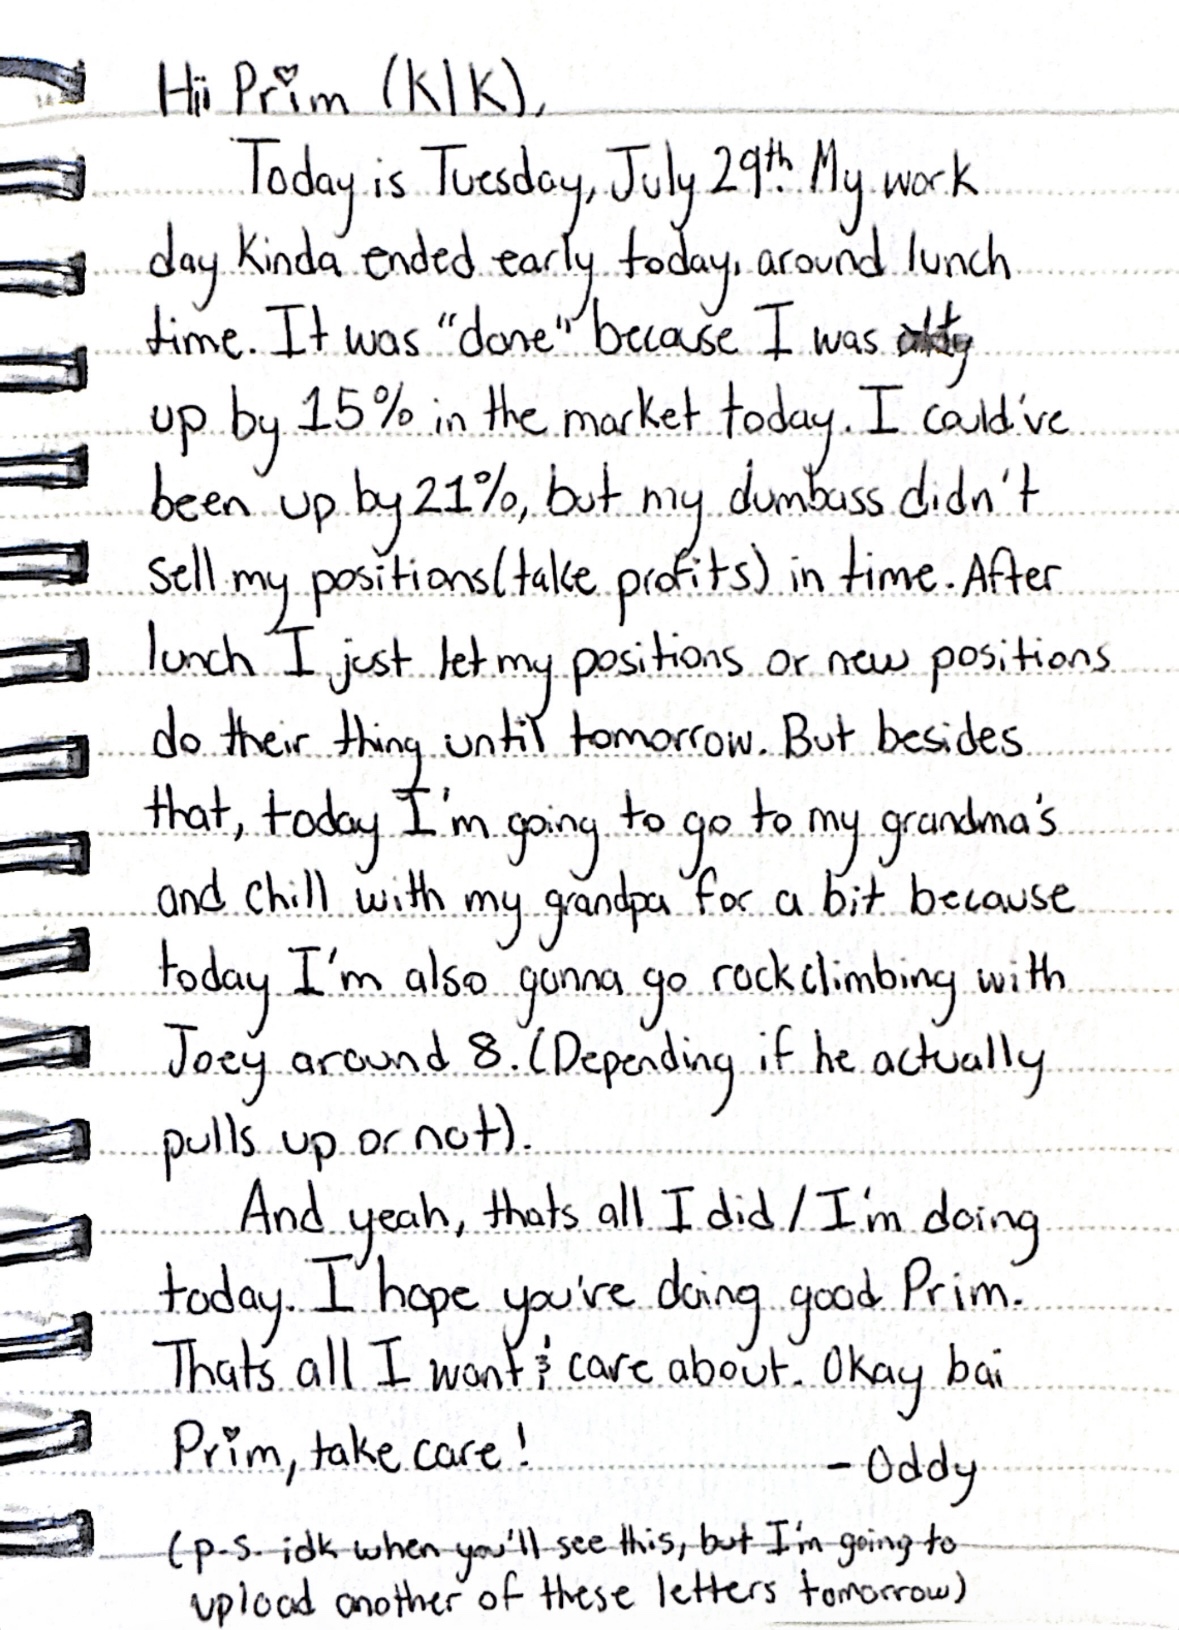 Hii Prim (KIK),
Today is Tuesday, July 29th. My work
day kinda ended early today, around lunch
time. It was "done" because I was
up by 15% in the market today. I could've
been up by 21%, but my dumbass didn't
sell my positions (take profits) in time. After
lunch I just let my positions or new positions
do their thing until tomorrow. But besides
that, today I'm going to go to my grandma's
and chill with my grandpa for a bit because
today I'm also gonna go rockclimbing with
Joey around 8. (Depending if he actually
pulls up or not).
And yeah, thats all I did / I'm doing
today. I hope you're doing good Prim.
Thats all I want & care about. Okay bai
Prim, take care!
- Oddy
(p.s. idk when you'll see this, but I'm going to
upload another of these letters tomorrow)